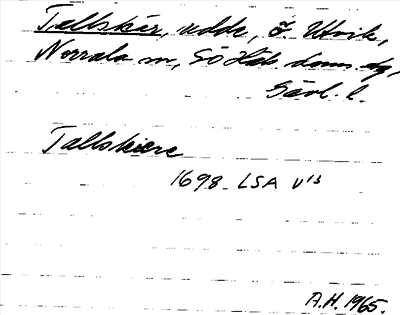 Tallskär, udde, ö. Utvik,
Norrala sn, Sö Häls. doms. dg,
Gävl. l.
Tallskiere
1698 LSA V 13
A.H. 1965.